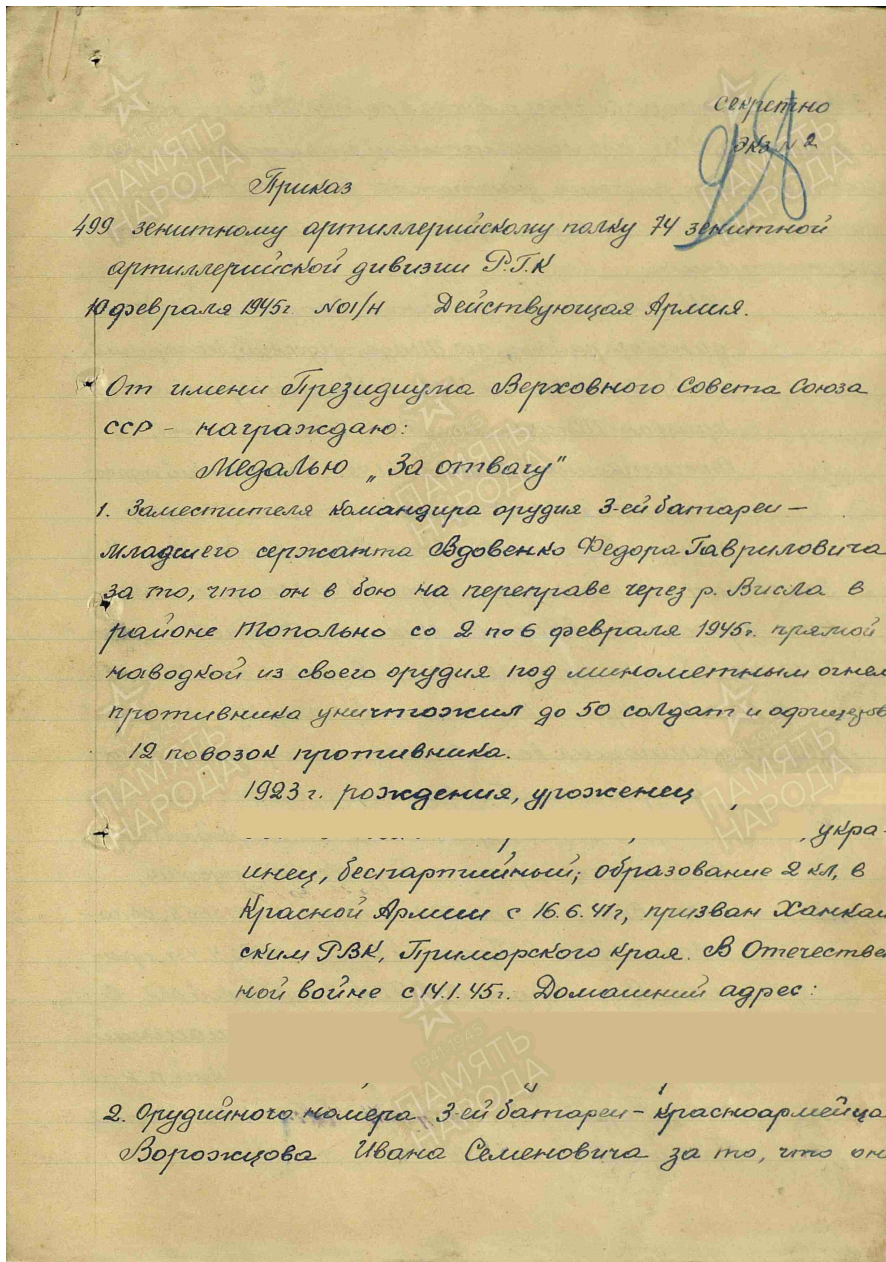 Секретно
Экз №2
Приказ
499 зенитному артиллерийскому полку 74 зенитной
артиллерийской дивизии Р.Г.К
10 февраля 1945г. №01/н Действующая Армия.
От имени Президиума Верховного Совета Союза
ССР - награждаю:
Медалью „За отвагу"
1. Заместителя командира орудия 3-ей батареи -
младшего сержанта Вдовенко Федора Гавриловича
за то, что он в бою на переправе через р. Висла в
районе Топольно со 2 по 6 февраля 1945г. прямой
наводкой из своего орудия под минометным огнем
противника уничтожил до 50 солдат и офицеров
12 повозок противника.
1923 г. рождения, уроженец
, укра-
инец, беспартийный; образование 2 кл, в
Красной Армии с 16.6.41г, призван Ханкай
ским РВК, Приморского края. В Отечествен
ной войне с 14.1.45г. Домашний адрес:
2. Орудийного номера 3-ей батареи - Красноармейца
Ворожцова Ивана Семеновича за то, что он
ПАМЯТЬ
НАРОДА